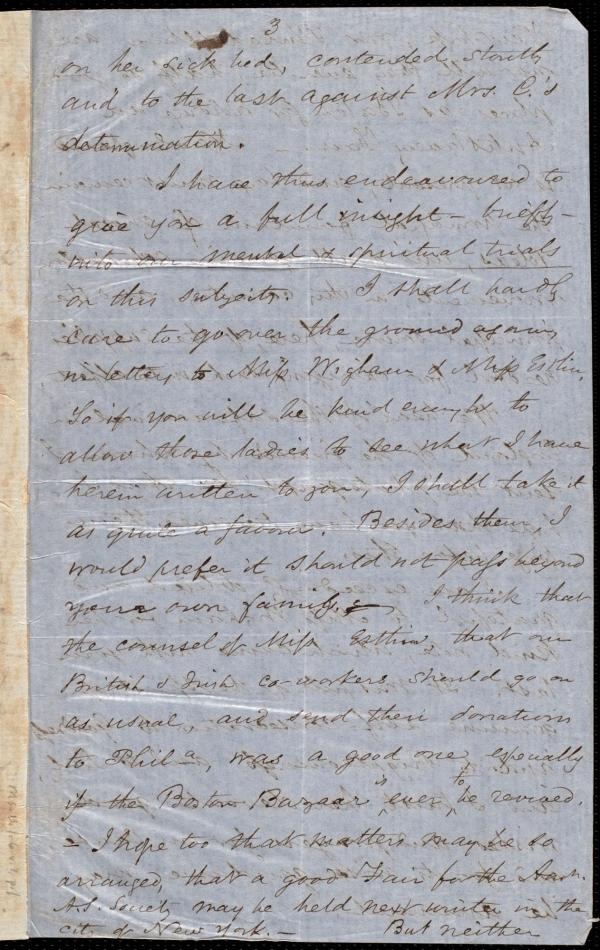 3
on her sick bed, contended stoutly
and to the last against Mrs. C.'s
determination.
I have thus endeavoured to
give you a full insight – briefly –
into our mental & spiritual trials
on this subject. I shall hardly
care to go over the ground again,
in letters to Miss Wigham & Miss Estlin.
So if you will be kind enough to
allow those ladies to see what I have
herein written to you, I shall take it
as quite a favor. Besides them, I
would prefer it should not pass beyond
your own family. – I think that
the counsel of Miss Estlin, that our
British & Irish co-workers should go on
as usual, and send their donations
to Phila, was a good one, especially
if the Boston Bazaar is ever to be revived.
– I hope too that matters may be so
arranged, that a good Fair for the Am.
A.S. Society may be held next winter in the
city of New York. – But neither